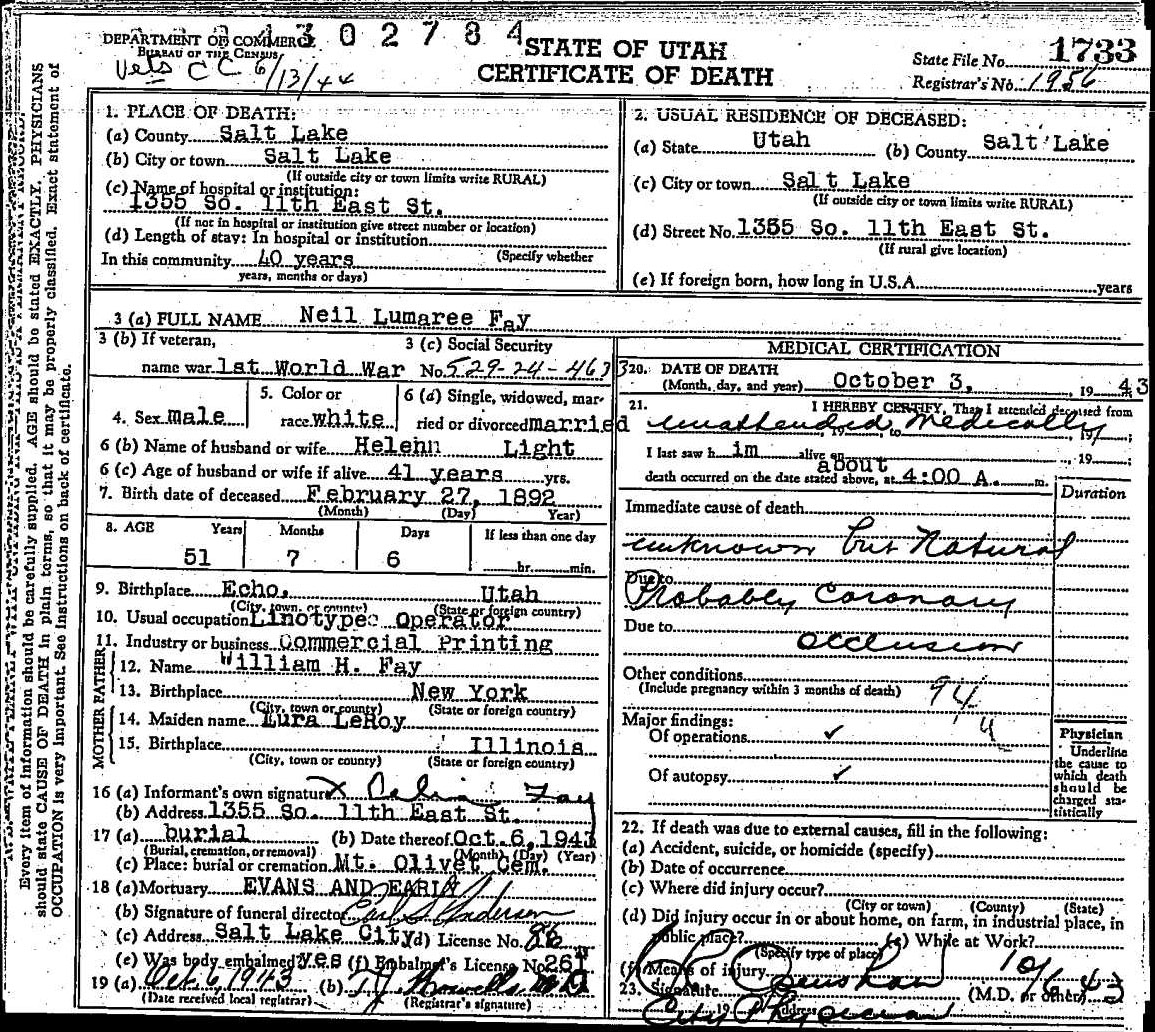 1302784
DEPARTMENT OF COMMERCE
BUREAU OF THE CENSUS
Vets C C 6/13/44
STATE OF UTAH
CERTIFICATE OF DEATH
State File No. 1733
Registrar's No. 1956
Every item of information should be carefully supplied. AGE should be stated EXACTLY. PHYSICIANS
should state CAUSE OF DEATH in plain terms, so that it may be properly classified. Exact statement of
OCCUPATION is very important. See instructions on back of certificate.
1. PLACE OF DEATH:
(a) County Salt Lake
(b) City or town Salt Lake
(If outside city or town limits write RURAL)
(c) Name of hospital or institution:
1355 So. 11th East St.
(If not in hospital or institution give street number or location)
(d) Length of stay: In hospital or institution
(Specify whether
In this community 40 years
years, months or days)
2. USUAL RESIDENCE OF DECEASED:
(a) State Utah (b) County Salt Lake
(c) City or town Salt Lake
(If outside city or town limits write RURAL)
(d) Street No. 1355 So. 11th East St.
(If rural give location)
(e) If foreign born, how long in U.S.A. years
3 (a) FULL NAME Neil Lumaree Fay
3 (b) If veteran,
name war 1st World War
3 (c) Social Security
No. 529-24-4633
4. Sex male
5. Color or
race white
6 (a) Single, widowed, mar-
ried or divorced married
6 (b) Name of husband or wife Helenn Light
6 (c) Age of husband or wife if alive 41 years yrs.
7. Birth date of deceased February 27, 1892
(Month) (Day) Year)
8. AGE Years Months Days If less than one day
51 7 6 hr. min.
9. Birthplace Echo, Utah
(City, town, or county) (State or foreign country)
10. Usual occupation Linotype Operator
11. Industry or business Commercial Printing
FATHER
12. Name William H. Fay
13. Birthplace New York
(City, town or county) (State or foreign country)
MOTHER
14. Maiden name Lura LeRoy
15. Birthplace Illinois
(City, town or county) (State or foreign country)
16 (a) Informant's own signature X Fay
(b) Address 1355 So. 11th East St.
17 (a) burial (b) Date thereof Oct. 6, 1943
(Burial, cremation, or removal) (Month) (Day) (Year)
(c) Place: burial or cremation Mt. Olivet Cem.
18 (a) Mortuary EVANS AND EARLY
(b) Signature of funeral director Earl S Anderson
(c) Address Salt Lake City (d) License No.
(e) Was body embalmed? yes (f) Embalmer's License No.
19 (a) Oct. 6 1943 (b) T.J. Howells M D
(Date received local registrar) (Registrar's signature)
MEDICAL CERTIFICATION
20. DATE OF DEATH
(Month, day, and year) October 3, 1943
21. I HEREBY CERTIFY, That I attended deceased from
unattended Medically, 19 , to , 19 ;
I last saw h im alive on , 19 ;
death occurred on the date stated above, at about 4:00 A. m.
Duration
Immediate cause of death
unknown but Natural
Due to
Probably Coronary
Due to
occlusion
Other conditions
(Include pregnancy within 3 months of death)
94
Major findings:
Of operations ✓
Of autopsy ✓
Physician
Underline
the cause to
which death
should be
charged sta-
tistically
22. If death was due to external causes, fill in the following:
(a) Accident, suicide, or homicide (specify)
(b) Date of occurrence
(c) Where did injury occur?
(City or town) (County) (State)
(d) Did injury occur in or about home, on farm, in industrial place, in
public place? (e) While at Work?
(Specify type of place)
(f) Means of injury
10/6 43
23. Signature (M.D. or other)
Address
City Physician